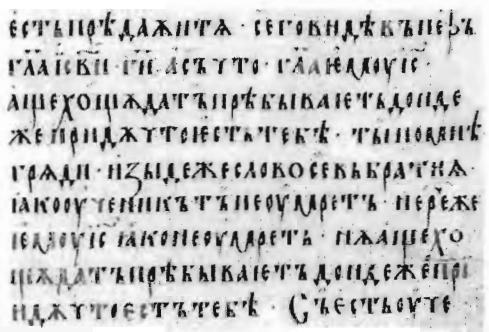 естъпрѣдаѫитѧ · сеговидѣвъпеⷮръ
гл҃аісв҃и · г҃и асьчто · гл҃аѥмоуіс҃
ащехощѫдатъпрѣбываѥтьдонде
жепридѫчтоѥстьтебѣ · тыпомьнѣ
грѧди · изыдежесловосевьбратиѭ ·
ꙗкооученикътънеоумретъ · нерече
ѥмоуіс҃ ꙗконеоумреть · нѫащехо
щѫдатъпрѣбываѥтъдондежепрі
идѫчтоестътебѣ · Съестьоуче